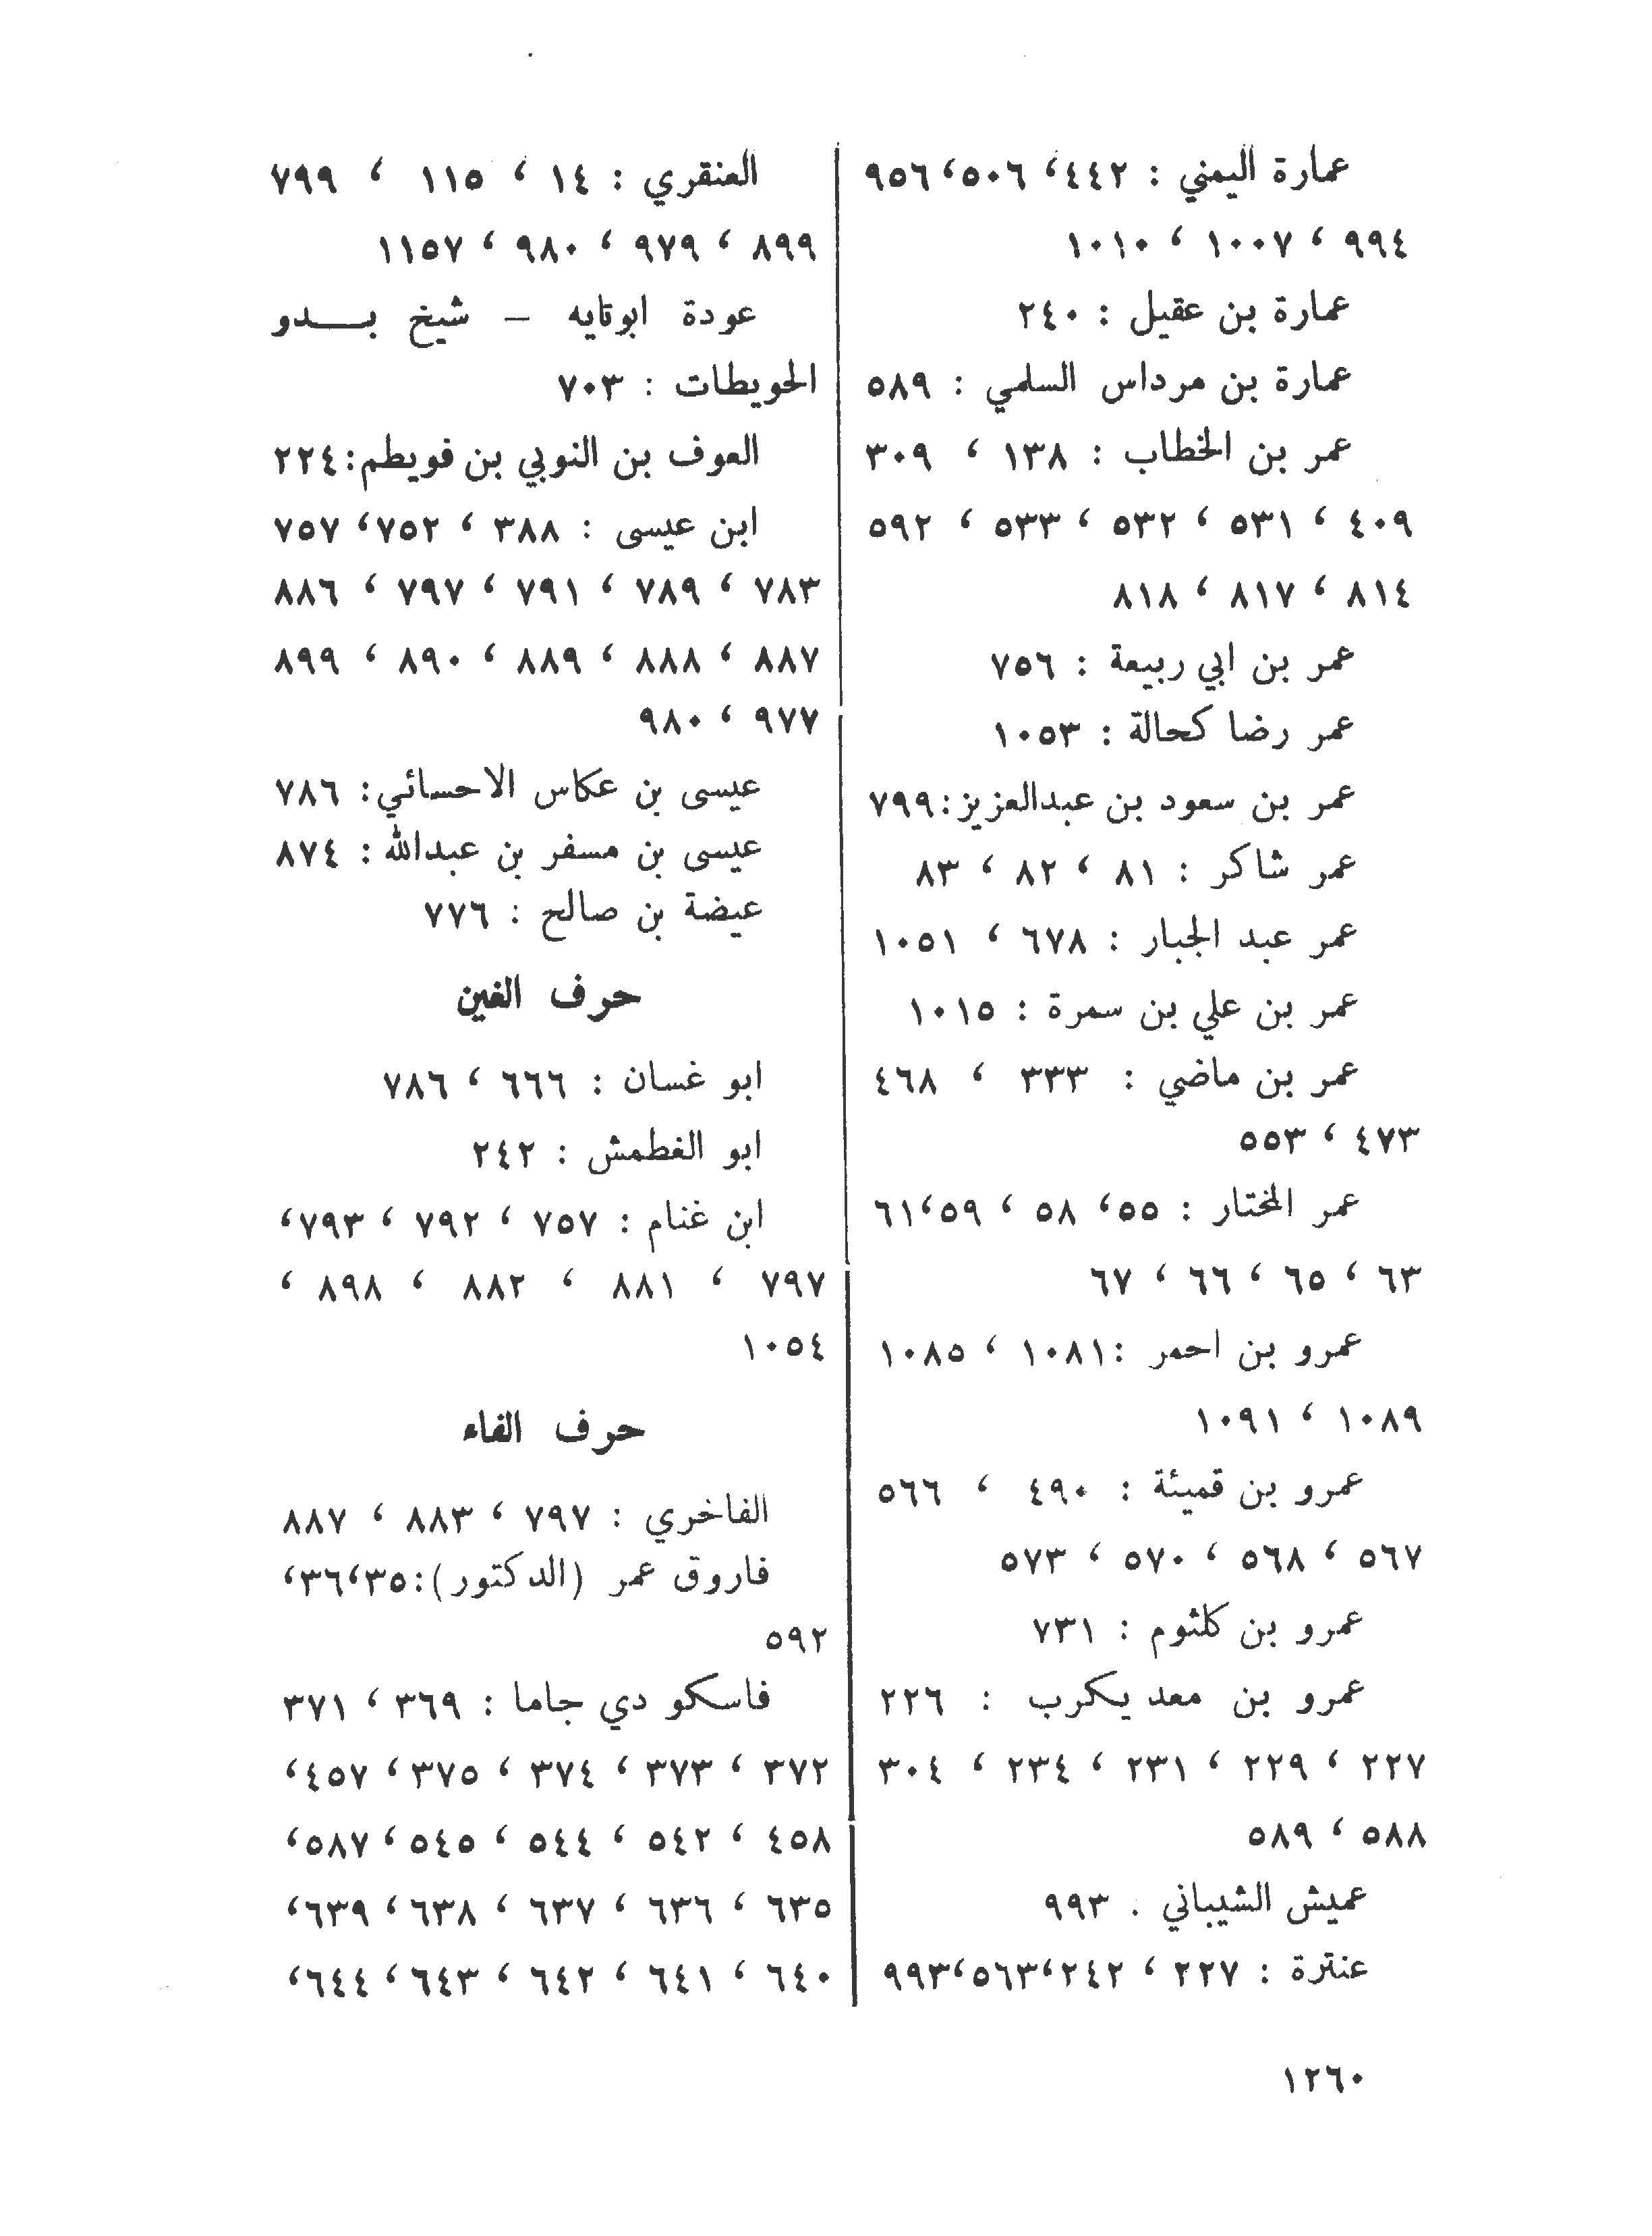 عمارة اليمني : ٤٤٢، ٥٠٦، ٩٥٦
٩٩٤ ، ١٠٠٧ ، ١٠١٠
عمارة بن عقيل : ٢٤٠
عمارة بن مرداس السلمي : ٥٨٩
عمر بن الخطاب : ١٣٨ ، ٣٠٩
٤٠٩ ، ٥٣١ ، ٥٣٢ ، ٥٣٣ ، ٥٩٢
٨١٤ ، ٨١٧ ، ٨١٨
عمر بن ابي ربيعة : ٧٥٦
عمر رضا كحالة : ١٠٥٣
عمر بن سعود بن عبدالعزيز: ٧٩٩
عمر شاكر : ٨١ ، ٨٢ ، ٨٣
عمر عبد الجبار : ٦٧٨ ، ١٠٥١
عمر بن علي بن سمرة : ١٠١٥
عمر بن ماضي : ٣٣٣ ، ٤٦٨
٤٧٣ ، ٥٥٣
عمر المختار : ٥٥، ٥٨ ، ٥٩، ٦١
٦٣ ، ٦٥ ، ٦٦ ، ٦٧
عمرو بن احمر : ١٠٨١ ، ١٠٨٥
١٠٨٩ ، ١٠٩١
عمرو بن قميئة : ٤٩٠ ، ٥٦٦
٥٦٧ ، ٥٦٨ ، ٥٧٠ ، ٥٧٣
عمرو بن كلثوم : ٧٣١
عمرو بن معد يكرب : ٢٢٦
٢٢٧ ، ٢٢٩ ، ٢٣١ ، ٢٣٤ ، ٣٠٤
٥٨٨ ، ٥٨٩
عميش الشيباني . ٩٩٣
عنترة : ٢٢٧ ، ٢٤٢، ٥٦٣، ٩٩٣
العنقري : ١٤ ، ١١٥ ، ٧٩٩
٨٩٩ ، ٩٧٩ ، ٩٨٠ ، ١١٥٧
عودة ابوتايه – شيخ بـــدو
الحويطات : ٧٠٣
العوف بن النوبي بن فويطم: ٢٢٤
ابن عيسى : ٣٨٨ ، ٧٥٢، ٧٥٧
٧٨٣ ، ٧٨٩ ، ٧٩١ ، ٧٩٧ ، ٨٨٦
٨٨٧ ، ٨٨٨ ، ٨٨٩ ، ٨٩٠ ، ٨٩٩
٩٧٧ ، ٩٨٠
عيسى بن عكاس الاحسائي: ٧٨٦
عيسى بن مسفر بن عبدالله : ٨٧٤
عيضة بن صالح : ٧٧٦
حرف الغين
ابو غسان : ٦٦٦ ، ٧٨٦
ابو الغطمش : ٢٤٢
ابن غنام : ٧٥٧ ، ٧٩٢ ، ٧٩٣،
٧٩٧ ، ٨٨١ ، ٨٨٢ ، ٨٩٨ ،
١٠٥٤
حرف الفاء
الفاخري : ٧٩٧ ، ٨٨٣ ، ٨٨٧
فاروق عمر (الدكتور): ٣٥، ٣٦،
٥٩٢
فاسكو دي جاما : ٣٦٩ ، ٣٧١
٣٧٢ ، ٣٧٣ ، ٣٧٤ ، ٣٧٥ ، ٤٥٧،
٤٥٨ ، ٥٤٢ ، ٥٤٤ ، ٥٤٥ ، ٥٨٧،
٦٣٥ ، ٦٣٦ ، ٦٣٧ ، ٦٣٨ ، ٦٣٩،
٦٤٠ ، ٦٤١ ، ٦٤٢ ، ٦٤٣ ، ٦٤٤،
١٢٦٠